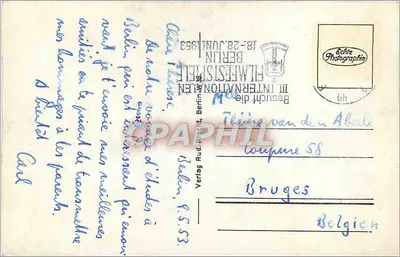 Berlin, 9.5.53
Chère Thérèse,
De notre voyage d'études à
Berlin qui est
vant je t'envoie mes meilleures
amitiés en te priant de transmettre
mes hommages à tes parents.
A bientôt
Carl
Verlag Rud. Pracht, Berlin
Besucht die
III. INTERNATIONALEN
FILMFESTSPIELE
BERLIN
18.-28. JUNI 1953
Echte
Photographie
Mlle
Thérèse van den Abeele
Coupure 58
Bruges
Belgien
CPAPHIL